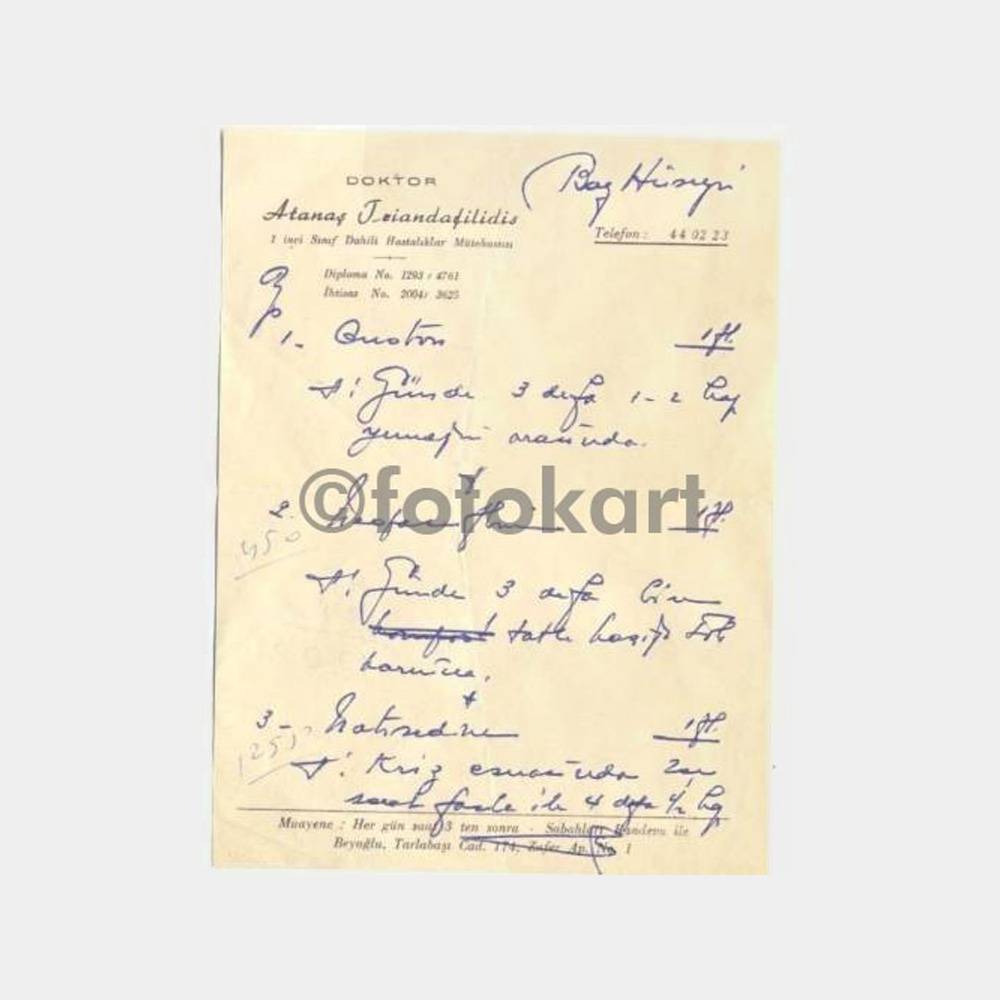 DOKTOR
Bay Hüseyin
Atanaş Triandafilidis
Telefon : 44 02 23
1 inci Sınıf Dahili Hastalıklar Mütehassısı
Diploma No. 1293 / 4761
İhtisas No. 2004 / 3625
Rp
1-
1 fl.
Günde 3 defa 1-2 hap
yemeğin arasında.
©fotokart
2.
1 fl.
450
Günde 3 defa bir
tatlı kaşığı tok
karnına.
3- Natisedine
1 fl.
Kriz esnasında 2şer
saat fasıla ile 4 defa 1/2 hap
Muayene : Her gün saat 3 ten sonra - Sabahları Randevu ile
Beyoğlu, Tarlabaşı Cad. 174, Zafer Ap. No. 1